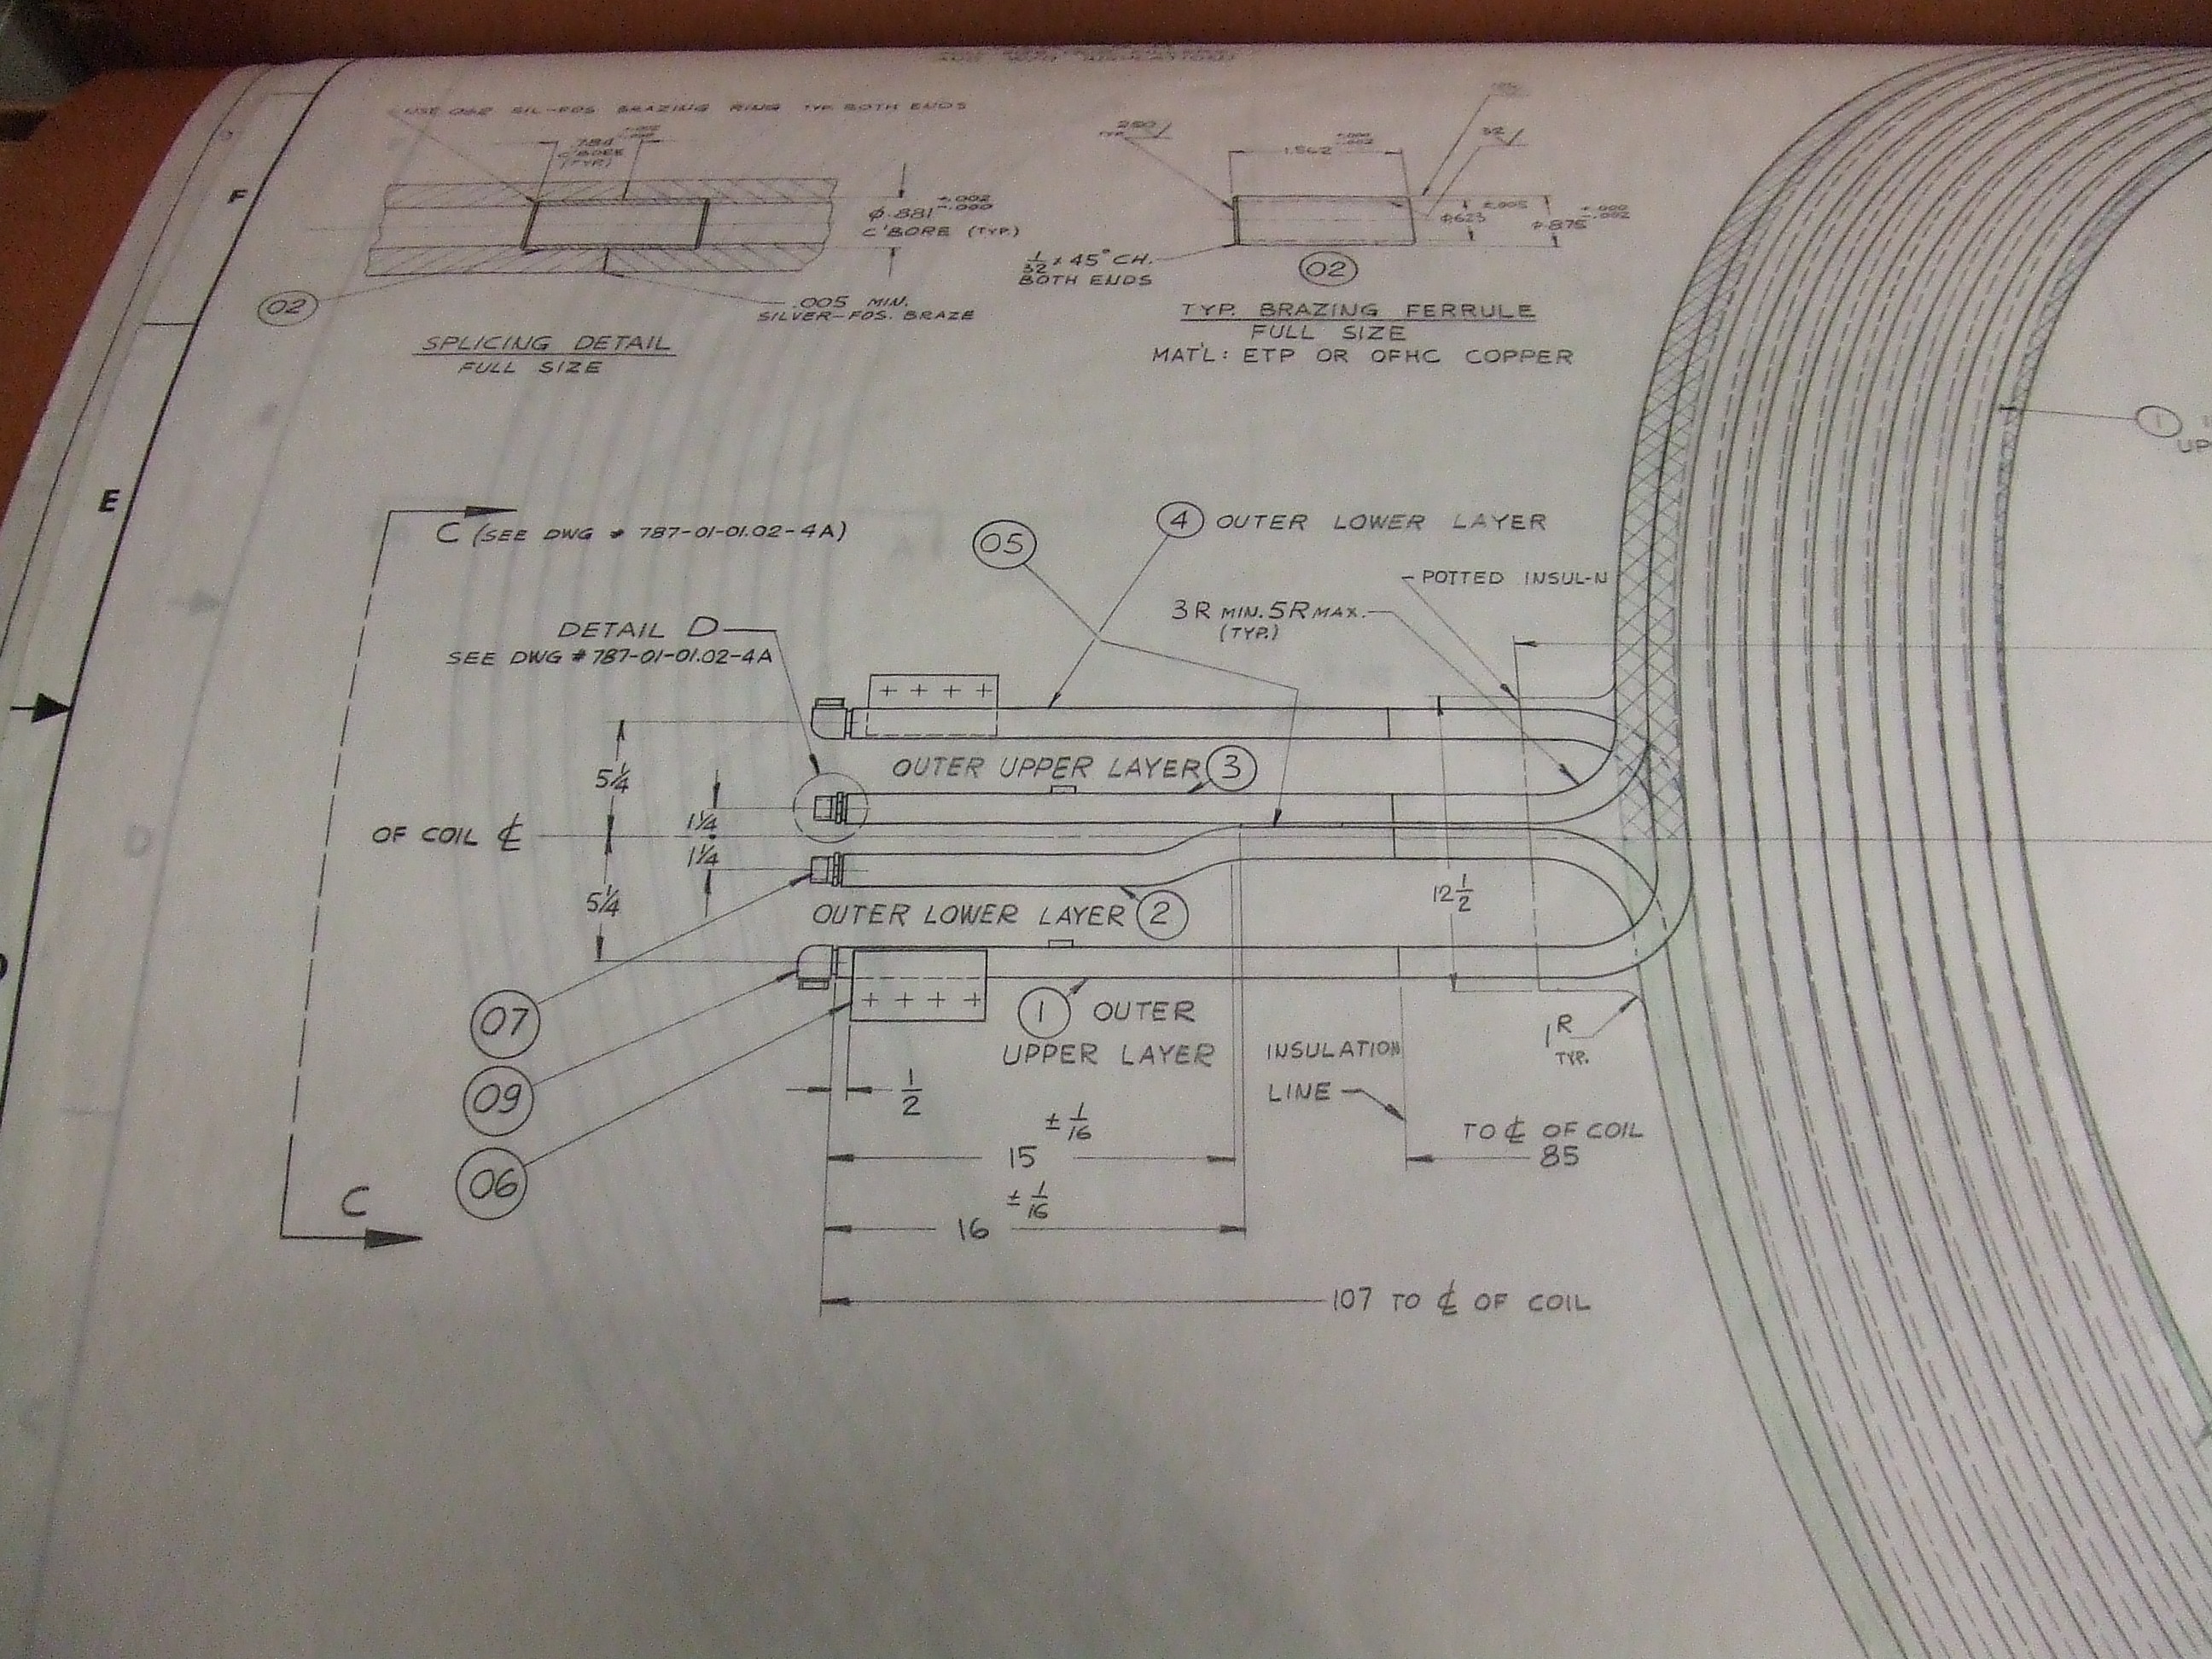 USE .062 SIL-FOS BRAZING RING TYP. BOTH ENDS
.784
C'BORE
(TYP.)
F
φ.881 +.002 -.000
C'BORE (TYP.)
02
.005 MIN.
SILVER-FOS. BRAZE
SPLICING DETAIL
FULL SIZE
250
TYP.
1.562 +.000 -.002
32
φ.623 ±.005
φ.875 +.000 -.002
1/32 x 45° CH.
BOTH ENDS
02
TYP. BRAZING FERRULE
FULL SIZE
MAT'L: ETP OR OFHC COPPER
1
UP
E
C (SEE DWG # 787-01-01.02-4A)
05
4 OUTER LOWER LAYER
POTTED INSUL-N
3R MIN. 5R MAX.
(TYP.)
DETAIL D
SEE DWG # 787-01-01.02-4A
OUTER UPPER LAYER 3
5 1/4
1 1/4
OF COIL ℄
1 1/4
5 1/4
12 1/2
OUTER LOWER LAYER 2
07
1 OUTER
UPPER LAYER
1R
TYP.
INSULATION
LINE
09
1/2
06
± 1/16
15
TO ℄ OF COIL
85
± 1/16
16
C
107 TO ℄ OF COIL